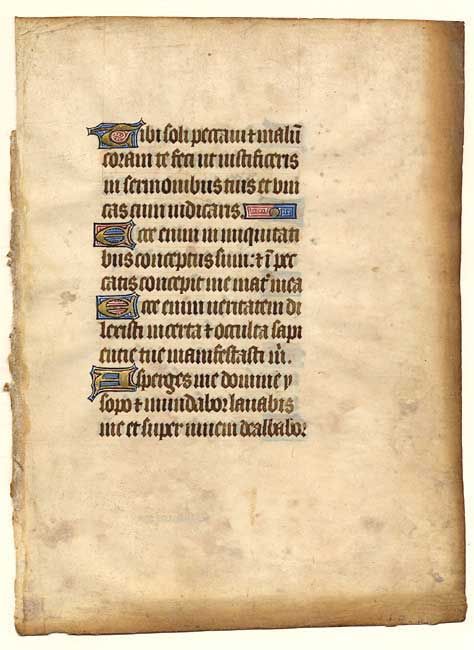 Tibi soli peccaui ⁊ malū
coram te feci ut iustificeris
in sermonibus tuis et vin
cas cum iudicaris.
Ecce enim in iniquitati
bus conceptus sum: ⁊ ī pec
catis concepit me mat̄ mea
Ecce enim ueritatem di
lexisti incerta ⁊ occulta sapi
entie tue manifestasti m̄.
Asperges me domine y
sopo ⁊ mundabor lauabis
me et super niuem dealbabor